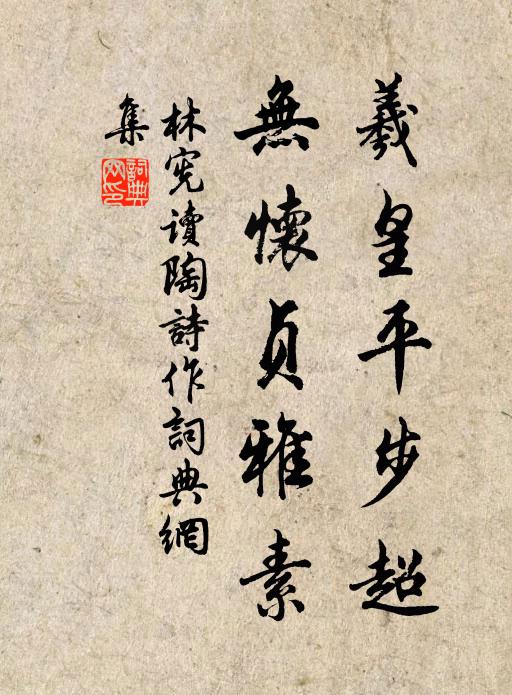 羲皇平步超
無懷貞雅素
林宪讀陶詩作詞典網
集
詞典網印